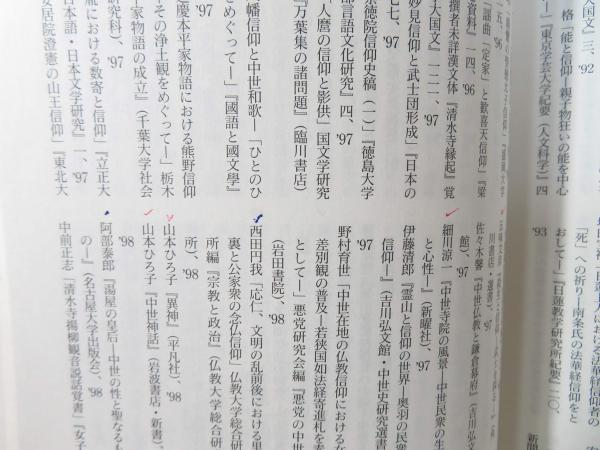 格「能と信仰―親子物狂いの能を中心
―」『東京学芸大学紀要（人文科学）』四
大国文』三、'92
一五、'96
「謡曲「定家」と歓喜天信仰」『梁
資料』一四、'96
撰者未詳漢文体『清水寺縁起』覚
大国文』一二一、'97
妙見信仰と武士団形成」『日本の
七七、'97
崇徳院信仰史稿（一）」『徳島大学
部言語文化研究』四、'97
人麿の信仰と影供」国文学研究
『万葉集の諸問題』（臨川書店）
幡信仰と中世和歌―「ひとのひ
をめぐって―」『國語と國文學』
慶本平家物語における熊野信仰
その浄土観をめぐって―」栃木
家物語の成立』（千葉大学社会
研究科）、'97
胤における数寄と信仰」『立正大
日本語・日本文学研究』一、'97
安居院澄憲の山王信仰」『東北大
「死」への祈り―南条氏の法華経信仰をと
おして―」『日蓮教学研究所紀要』二〇、
'93
佐々木馨『中世仏教と鎌倉幕府』（吉川弘文
館）、'97
細川涼一『中世寺院の風景―中世民衆の生
と心性』（新曜社）、'97
伊藤清郎『霊山と信仰の世界―奥羽の民衆
信仰―』（吉川弘文館・中世史研究選書
'97
野村育世「中世在地の仏教信仰における女
差別観の普及―若狭国如法経寄進札を素
として―」悪党研究会編『悪党の中世
（岩田書院）、'98
西田円我「応仁、文明の乱前後における里
裏と公家衆の念仏信仰」仏教大学総合研
所編『宗教と政治』（仏教大学総合研
所）、'98
山本ひろ子『異神』（平凡社）、'98
山本ひろ子『中世神話』（岩波書店・新書）、
'98
阿部泰郎『湯屋の皇后―中世の性と聖なるも
の―』（名古屋大学出版会）、'98
中前正志「清水寺揚柳観音説話覚書」『女子